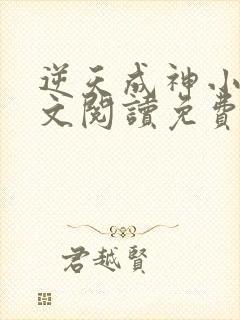 逆天成神小
文閱讀免費
君越賢